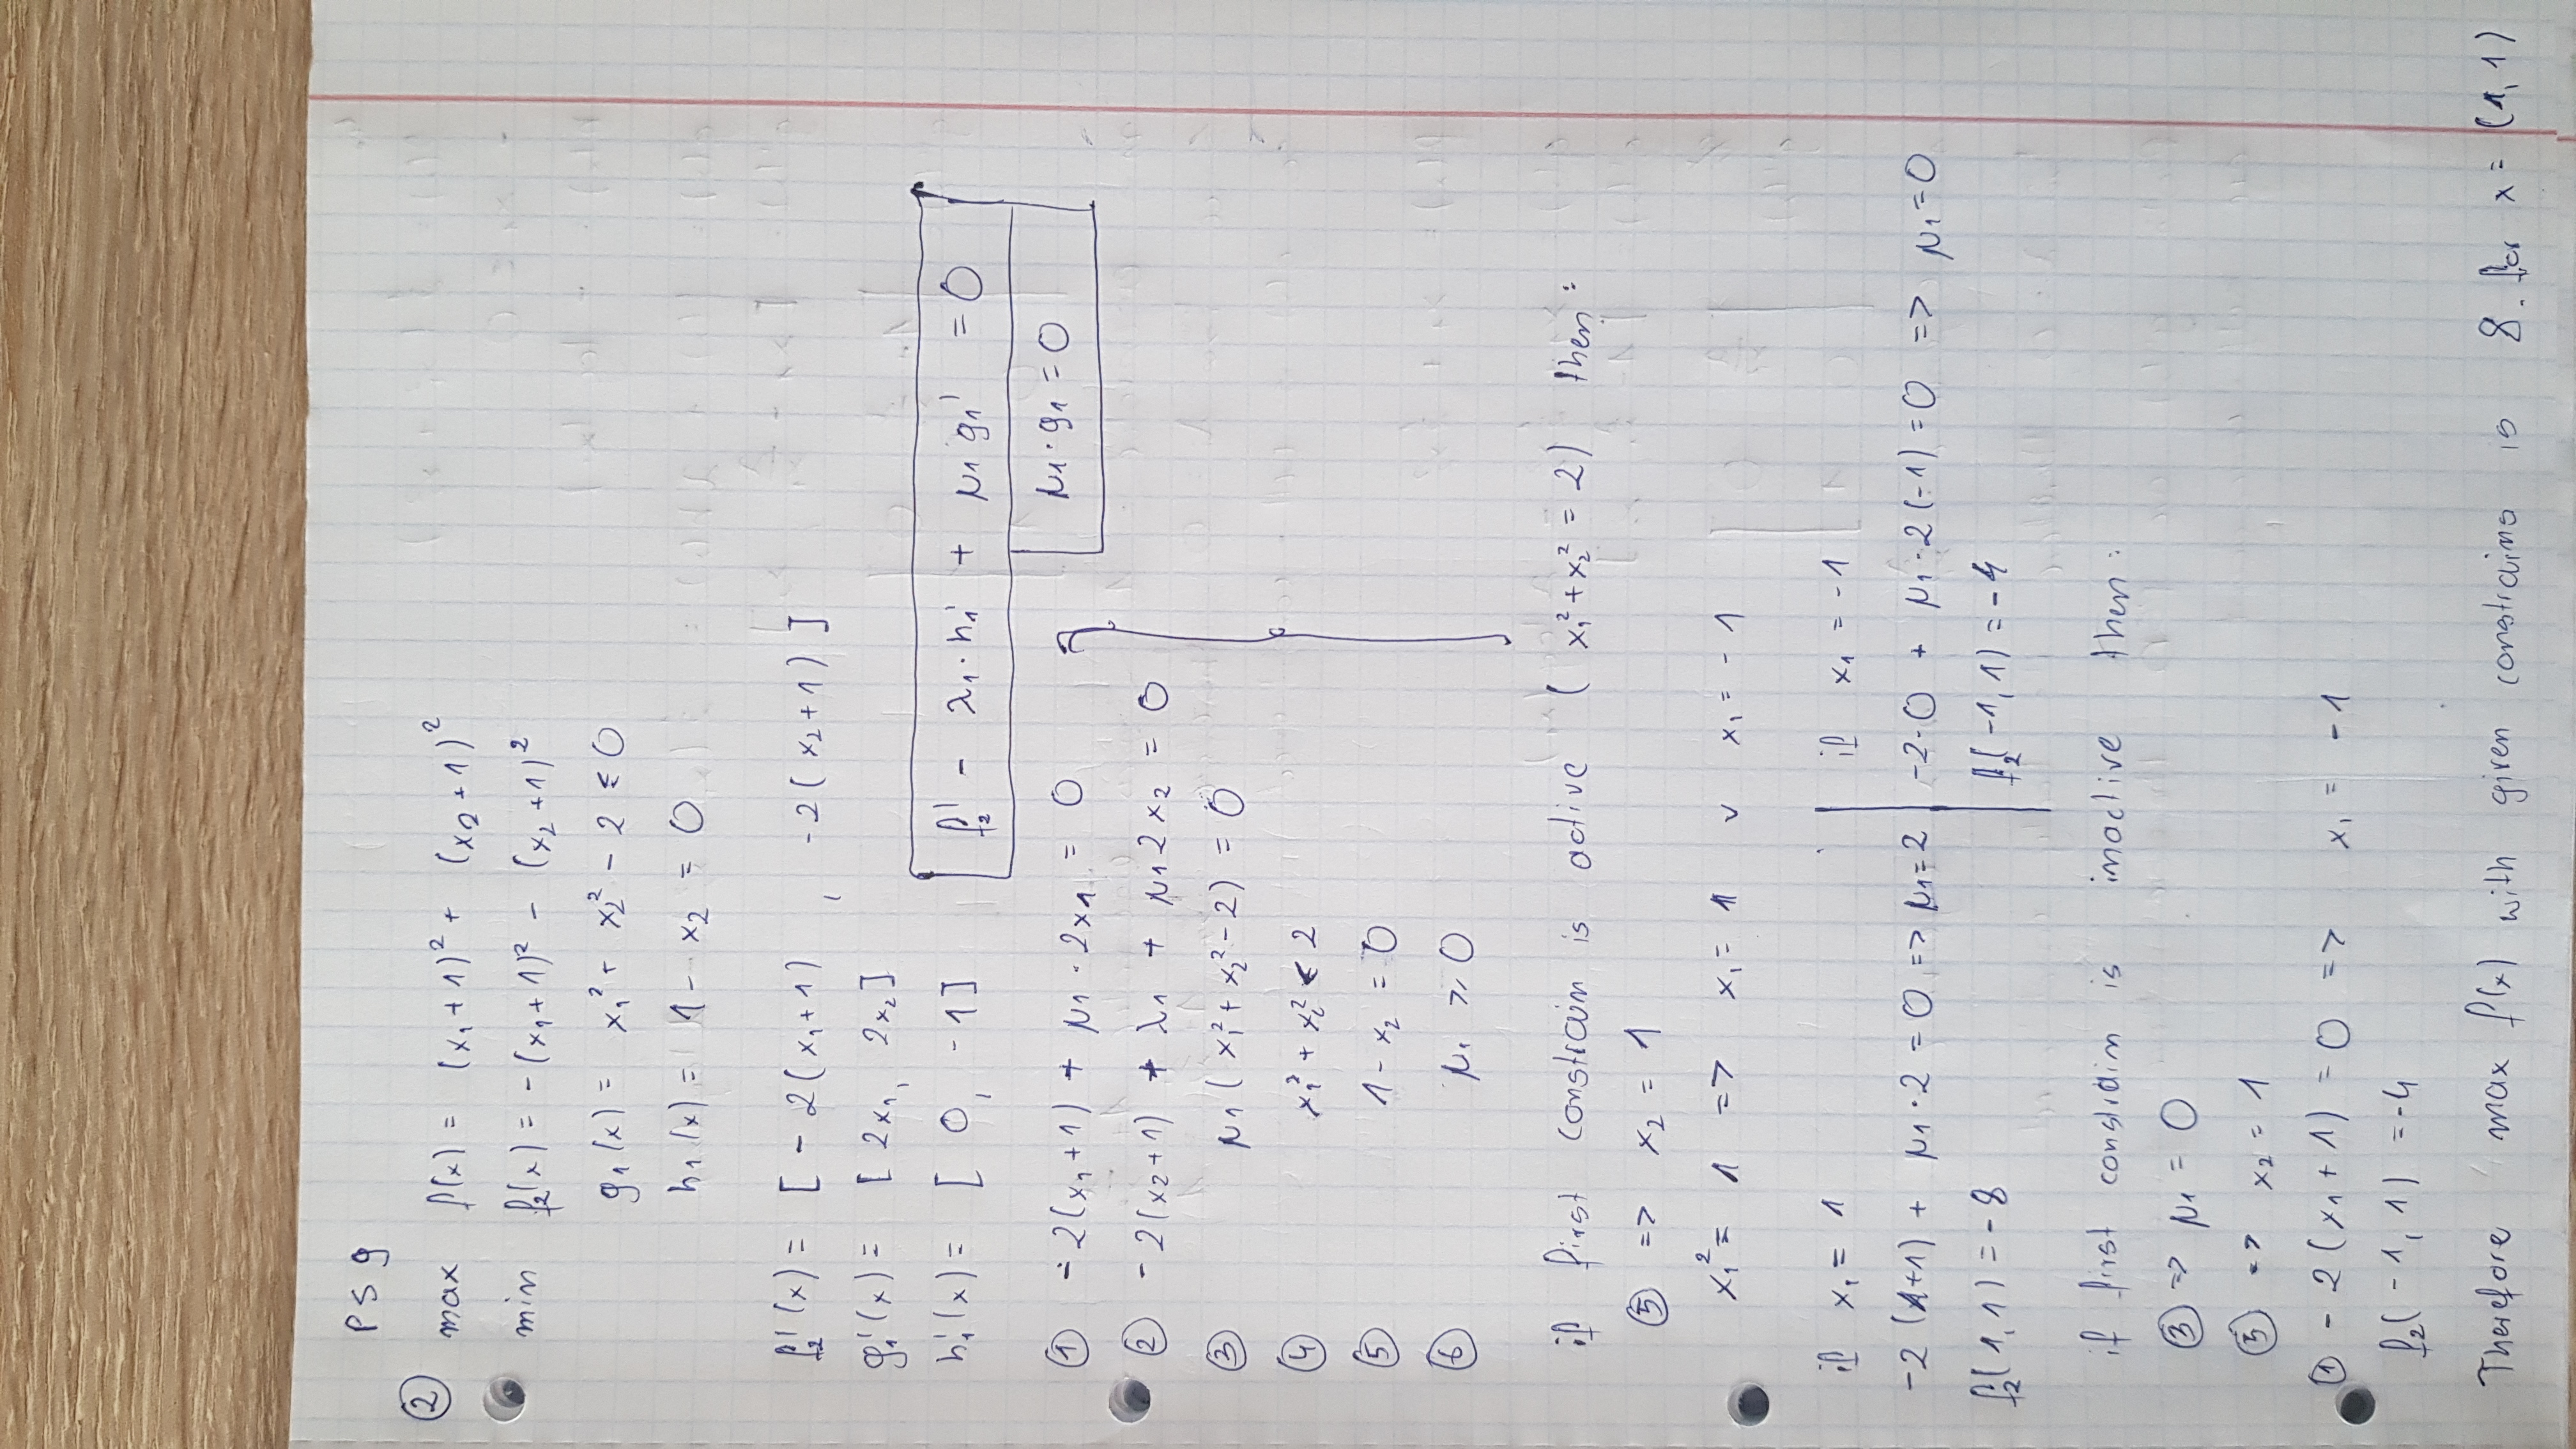 PS 9
② max f(x) = (x₁ + 1)² + (x₂ + 1)²
min f₂(x) = -(x₁ + 1)² - (x₂ + 1)²
g₁(x) = x₁² + x₂² - 2 ≤ 0
h₁(x) = 1 - x₂ = 0
f₂'(x) = [ - 2(x₁ + 1) , -2(x₂ + 1) ]
g₁'(x) = [ 2x₁, 2x₂ ]
h₁'(x) = [ 0, -1 ]
f₂' - λ₁ · h₁' + μ₁ g₁' = 0
μ₁ · g₁ = 0
① -2(x₁ + 1) + μ₁ · 2x₁ = 0
② -2(x₂ + 1) + λ₁ + μ₁ 2x₂ = 0
③ μ₁ (x₁² + x₂² - 2) = 0
④ x₁² + x₂² ≤ 2
⑤ 1 - x₂ = 0
⑥ μ₁ ≥ 0
if first constraim is active ( x₁² + x₂² = 2) then:
⑤ => x₂ = 1
x₁² = 1 => x₁ = 1 v x₁ = -1
if x₁ = 1
-2 (1+1) + μ₁ · 2 = 0 => μ₁ = 2
f₂(1,1) = -8
if x₁ = -1
-2·0 + μ₁ · 2(-1) = 0 => μ₁ = 0
f₂(-1,1) = -4
if first constraim is inactive then:
③ => μ₁ = 0
⑤ => x₂ = 1
① -2(x₁ + 1) = 0 => x₁ = -1
f₂(-1, 1) = -4
Therefore max f(x) with given constraims is 8. for x = (1, 1)